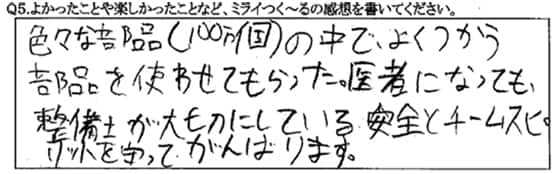 Q5.よかったことや楽しかったことなど、ミライつく～るの感想を書いてください。
色々な部品(100万個)の中で、よくつかう
部品を使わせてもらった。医者になっても、
整備士が大ものにしている安全とチームスピ。
リットを守ってがんばります。